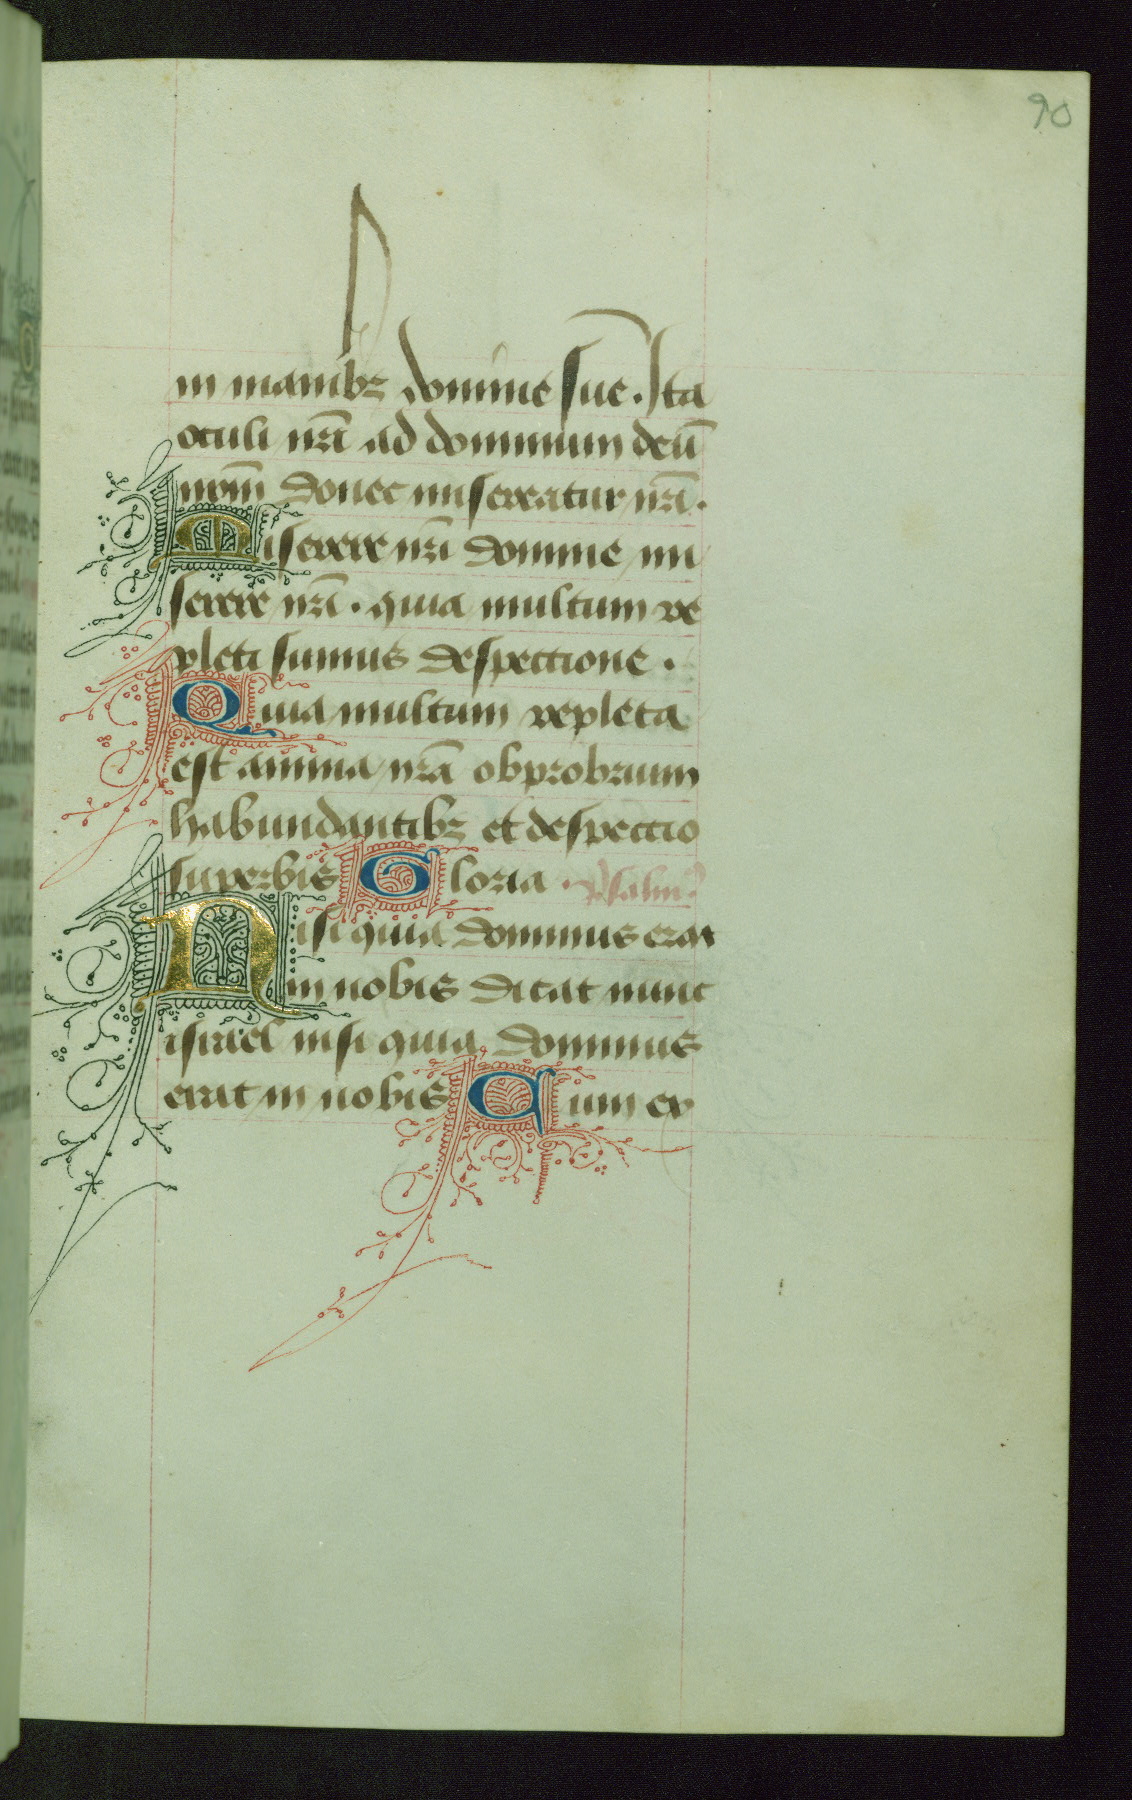 90
in manibꝫ domine sue . Ita
oculi nr̄i ad dominum deū
nr̄m donec misereatur nr̄i .
Miserere nr̄i domine mi
serere nr̄i . quia multum re
pleti sumus despectione .
Quia multum repleta
est anima nr̄a obprobrium
habundantibꝫ et despectio
superbis Gloria . psalm9
Nisi quia dominus erat
in nobis dicat nunc
israel nisi quia dominus
erat in nobis Cum ex